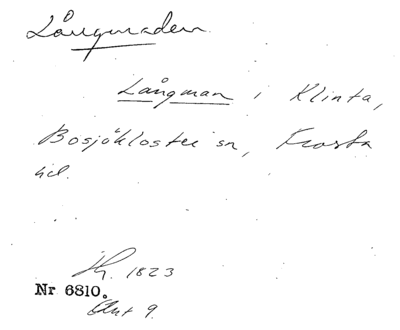 Långmaden
Långman i Klinta,
Bosjökloster sn, Frosta
hd.
1823
Nr 6810.
Akt 9.